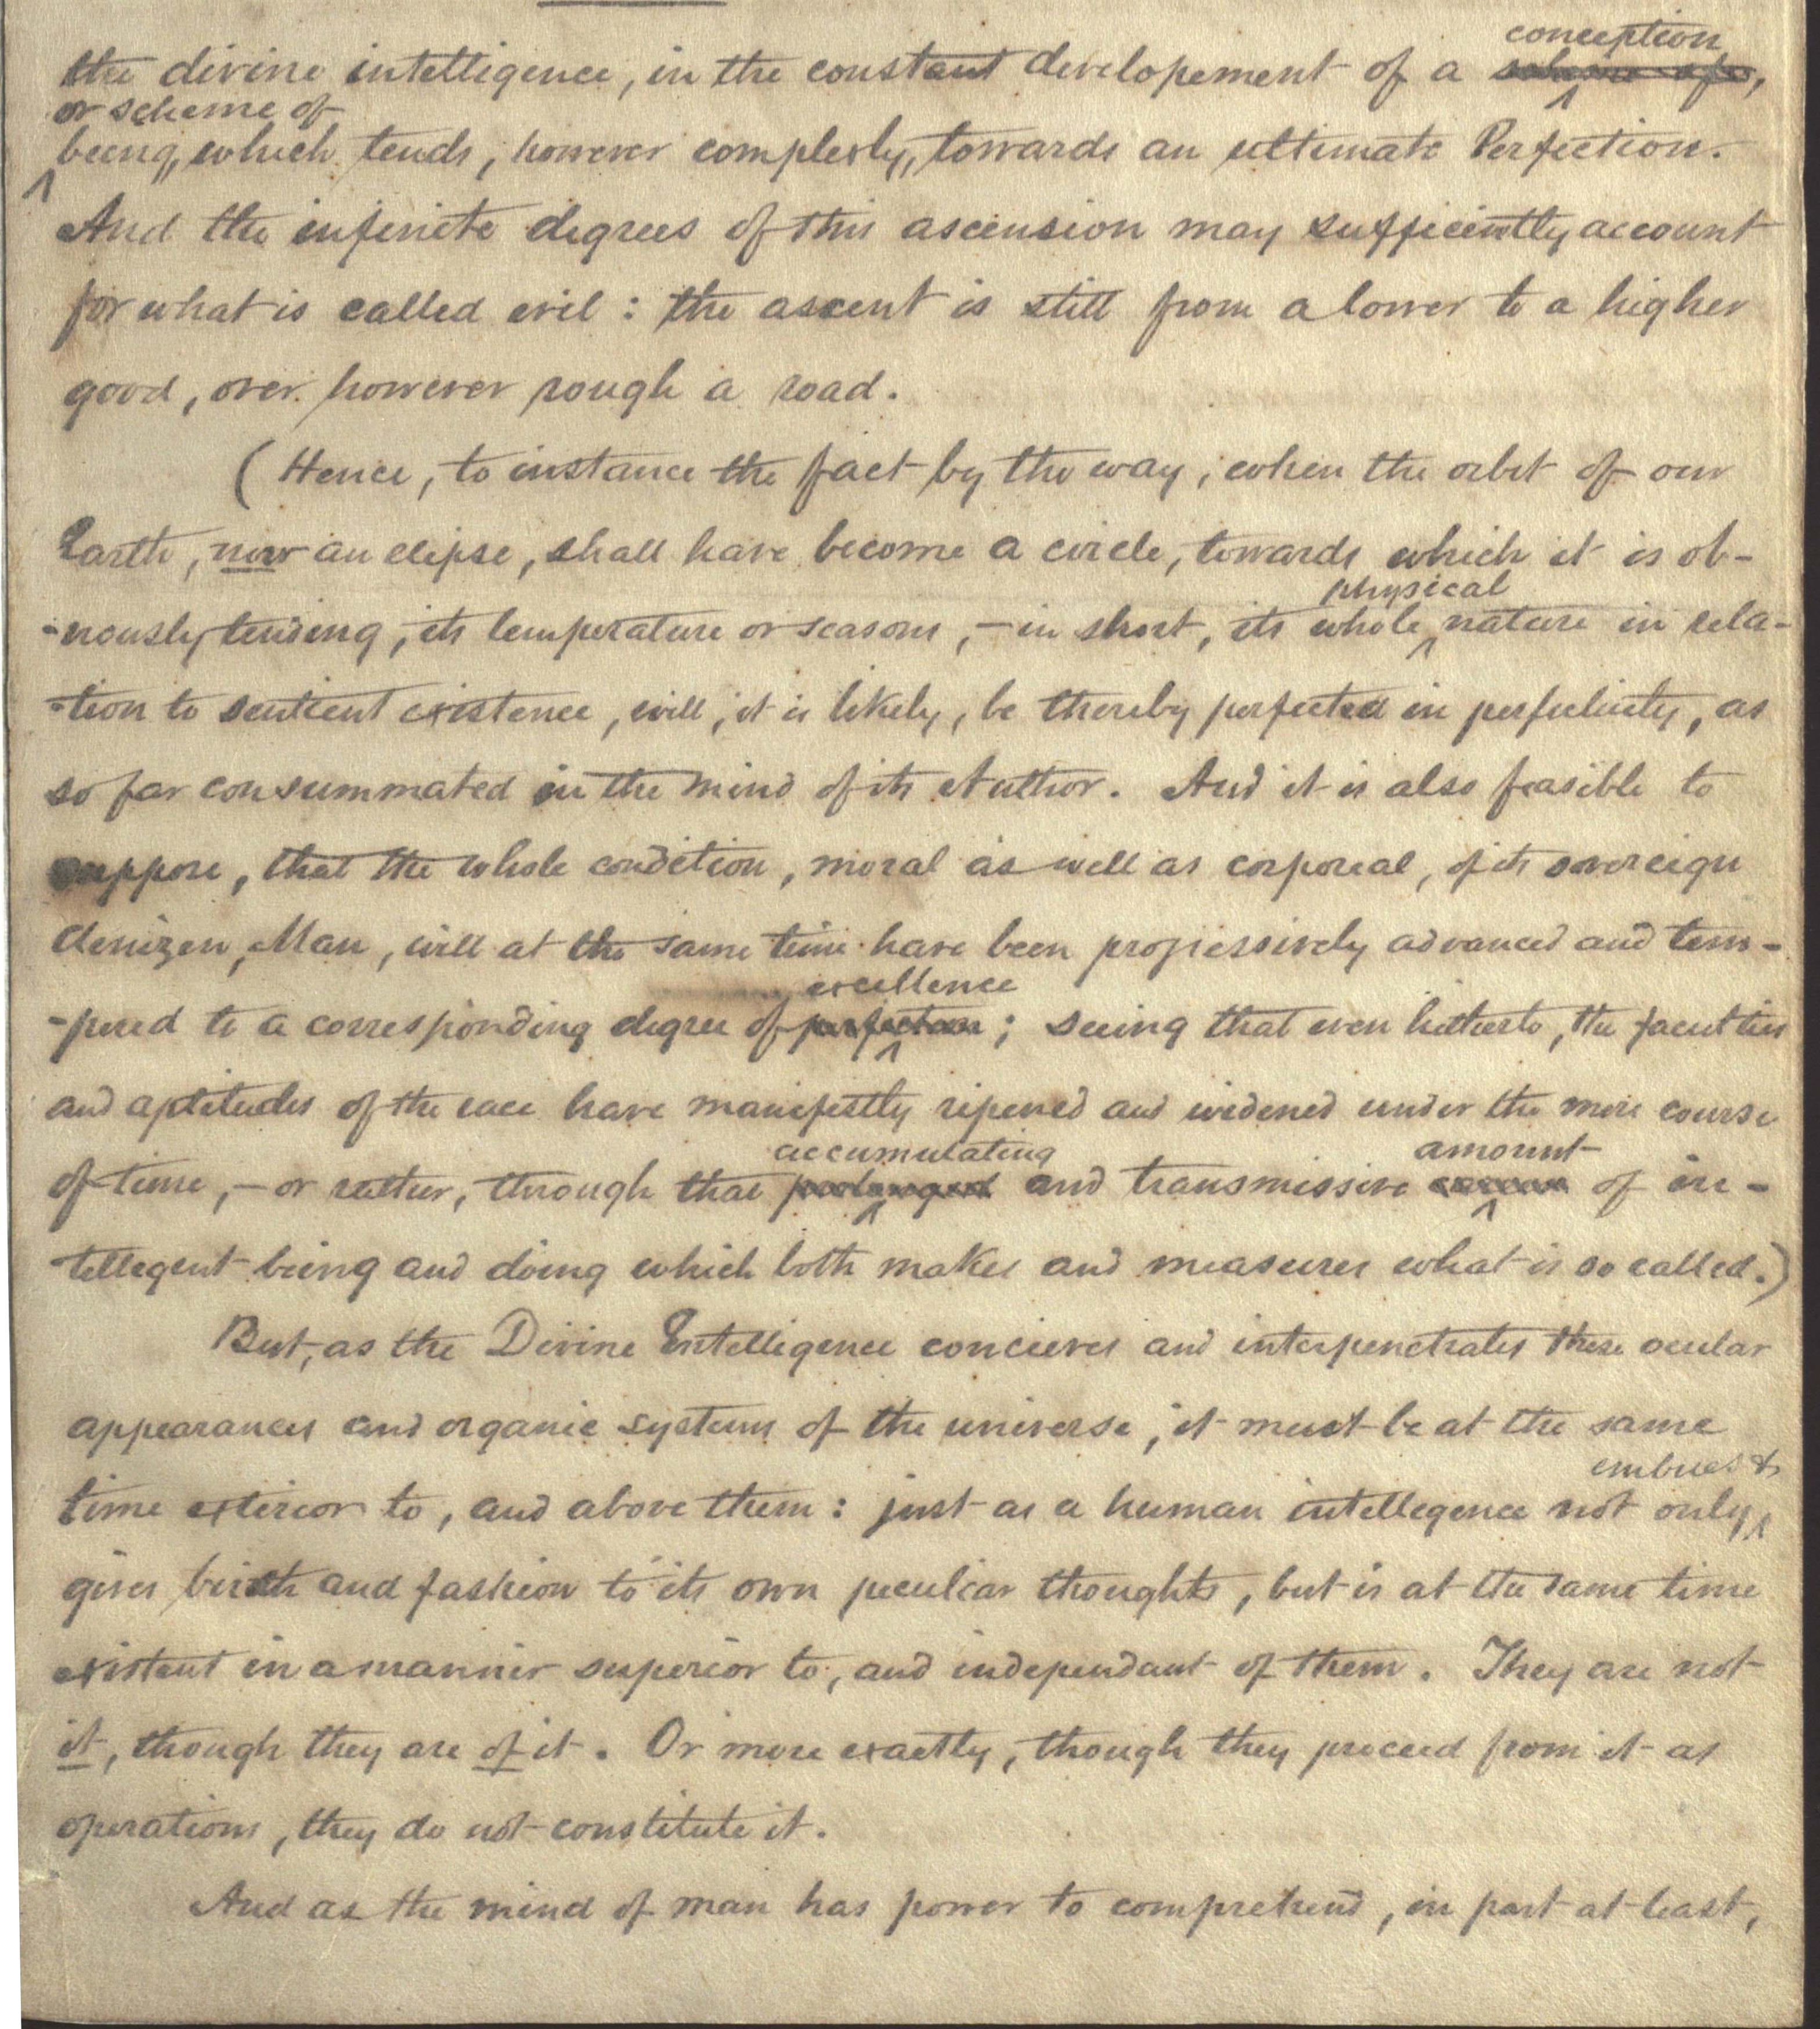 conception
the divine intelligence, in the constant developement of a scheme of,
or scheme of
being, which tends, however complexly, towards an ultimate Perfection.
And the infinite degrees of this ascension may sufficiently account
for what is called evil: the ascent is still from a lower to a higher
good, over however rough a road.
(Hence, to instance the fact by the way, when the orbit of our
Earth, now an elipse, shall have become a circle, towards which it is ob-
physical
-viously tending, its temperature or seasons, — in short, its whole nature in rela-
-tion to sentient existence, will, it is likely, be thereby perfected in perfectivity, as
so far consummated in the mind of its Author. And it is also feasible to
suppose, that the whole condition, moral as well as corporeal, of its sovereign
denizen, Man, will at the same time have been progressively advanced and tem-
excellence
-pered to a corresponding degree of perfection; seeing that even hitherto, the faculties
and aptitudes of the race have manifestly ripened and widened under the mere course
accumulating amount
of time, — or rather, through that prolonged and transmissive of in-
-tellegent being and doing which both makes and measures what is so called.)
But, as the Divine Intelligence concieves and interpenetrates these ocular
appearances and organic systems of the universe, it must be at the same
embues &
time exterior to, and above them: just as a human intellegence not only
gives birth and fashion to its own peculiar thoughts, but is at the same time
existent in a manner superior to, and independant of them. They are not
it, though they are of it. Or more exactly, though they proceed from it as
operations, they do not constitute it.
And as the mind of man has power to comprehend, in part at least,